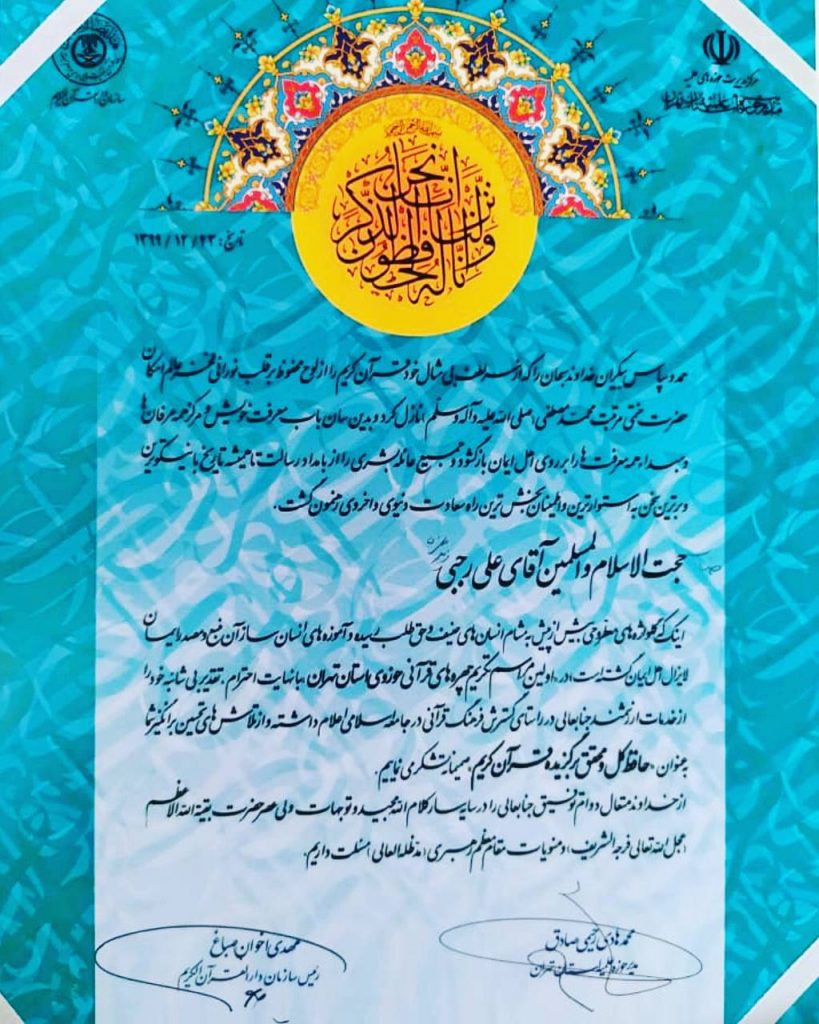 مرکز مدیریت حوزه های علمیه
سازمان دارالقرآن الکریم
بسم الله الرحمن الرحیم
إنا نحن نزلنا الذکر وإنا له لحافظون
تاریخ: ۱۳۹۹/۱۲/۲۳
حمد و سپاس بیکران خداوند سبحان را که از سر لطف بی مثال خود قرآن کریم را از لوح محفوظ بر قلب نورانی فخر عالم امکان
حضرت ختمی مرتبت محمد مصطفی (صلی الله علیه و آله و سلم) نازل کرد و بدین سان باب معرفت خویش و مرکز همه عرفان ها
و مبداء همه معرفت ها را بر روی اهل ایمان بازگشود و جمیع عائله بشری را از بامداد رسالت تا همیشه تاریخ با نیکوترین
و برترین سخن به استوارترین و اطمینان بخش ترین راه سعادت دنیوی و اخروی رهنمون گشت.
حجت الاسلام والمسلمین آقای علی رجبی
اینک که گلواژه های معطر وحی بیش از پیش به مشام انسان های حنیف و حق طلب رسیده و آموزه های انسان ساز آن منبع و مصدر ایمان
لایزال اهل ایمان گشته است، در «اولین مراسم تکریم چهره های قرآنی حوزوی استان تهران» با نهایت احترام، تقدیر بی شائبه خود را
از خدمات ارزشمند جنابعالی در راستای گسترش فرهنگ قرآنی در جامعه اسلامی اعلام داشته و از تلاش های تحسین برانگیز شما
به عنوان «حافظ کل و محقق برگزیده قرآن کریم» صمیمانه تشکر می نماییم.
از خداوند متعال دوام توفیق جنابعالی را در سایه سار کلام الله مجید و توجهات ولی عصر حضرت بقیة الله الاعظم
(عجل الله تعالی فرجه الشریف) و منویات مقام معظم رهبری (مدظله العالی) مسئلت داریم.
محمدهادی رحیمی صادق
مدیر حوزه علمیه استان تهران
مهدی اخوان صباغ
رئیس سازمان دارالقرآن الکریم